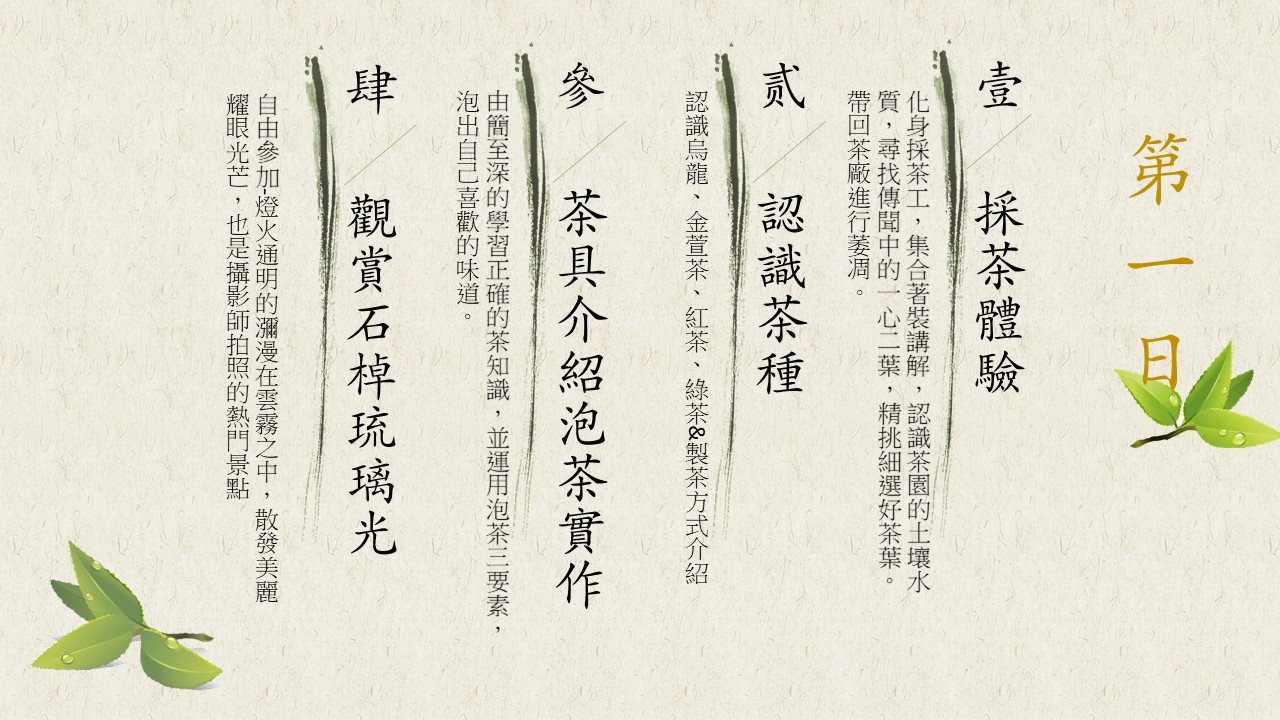 第一日
壹
採茶體驗
化身採茶工，集合著裝講解，認識茶園的土壤水
質，尋找傳聞中的一心二葉，精挑細選好茶葉。
帶回茶廠進行萎凋。
貳
認識茶種
認識烏龍、金萱茶、紅茶、綠茶&製茶方式介紹
參
茶具介紹泡茶實作
由簡至深的學習正確的茶知識，並運用泡茶三要素，
泡出自己喜歡的味道。
肆
觀賞石棹琉璃光
自由參加-燈火通明的瀰漫在雲霧之中，散發美麗
耀眼光芒，也是攝影師拍照的熱門景點